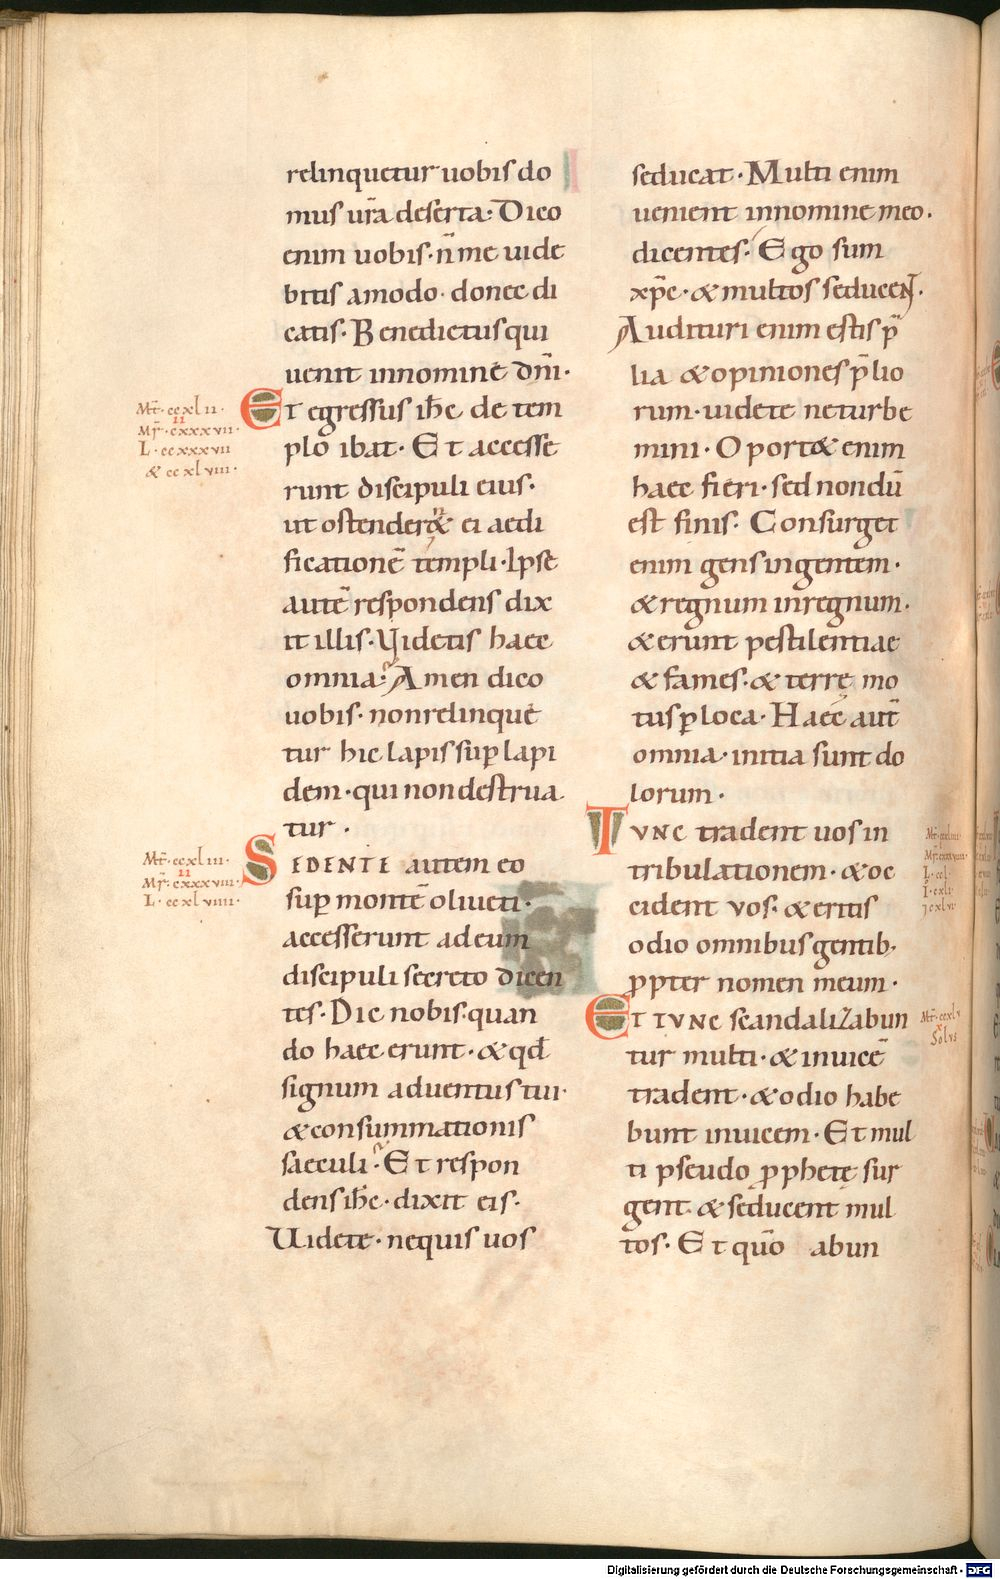 relinquetur uobis do
mus ur̄a deserta· Dico
enim uobis· n̄ me uide
bitis amodo· donec di
catis· Benedictus qui
uenit innomine dn̄i·
Et egressus ih̄c de tem
plo ibat· Et accesse
runt discipuli eius·
ut ostender& ei aedi
ficationē templi· Ipse
autē respondens dix
it illis· Uidetis haec
omnia? Amen dico
uobis· non relinque
tur hic lapis sup̄ lapi
dem· qui non destrua
tur·
SEDENTE autem eo
sup̄ montē oliueti·
accesserunt ad eum
discipuli secreto dicen
tes· Dic nobis· quan
do haec erunt· & qd̄
signum aduentus tui·
& consummationis
saeculi? Et respon
dens ih̄c· dixit eis·
Uidete· nequis uos
seducat· Multi enim
uenient innomine meo·
dicentes· Ego sum
xp̄c· & multos seducent·
Audituri enim estis p̄
lia & opiniones p̄lio
rum· uidete neturbe
mini· Oport& enim
haec fieri· sed nondū
est finis· Consurget
enim gens ingentem·
& regnum inregnum·
& erunt pestilentiae
& fames· & terrę mo
tus p̄ loca· Haec aut̄
omnia· initia sunt do
lorum·
TVNC tradent uos in
tribulationem· & oc
cident vos· & eritis
odio omnibus gentib;
p̄pter nomen meum·
ET TVNC scandalizabun
tur multi· & inuicē
tradent· & odio habe
bunt inuicem· Et mul
ti pseudo p̄phetę sur
gent· & seducent mul
tos· Et quō abun
Mt̄· ccxlii·
II
Mr̄· cxxxvii·
L· ccxxxvii
& ccxlviii·
Mt̄· ccxliii·
II
Mr̄· cxxxviii·
L· ccxlviiii·
Mt̄· ccxlv
x
Solus
Digitalisierung gefördert durch die Deutsche Forschungsgemeinschaft - DFG